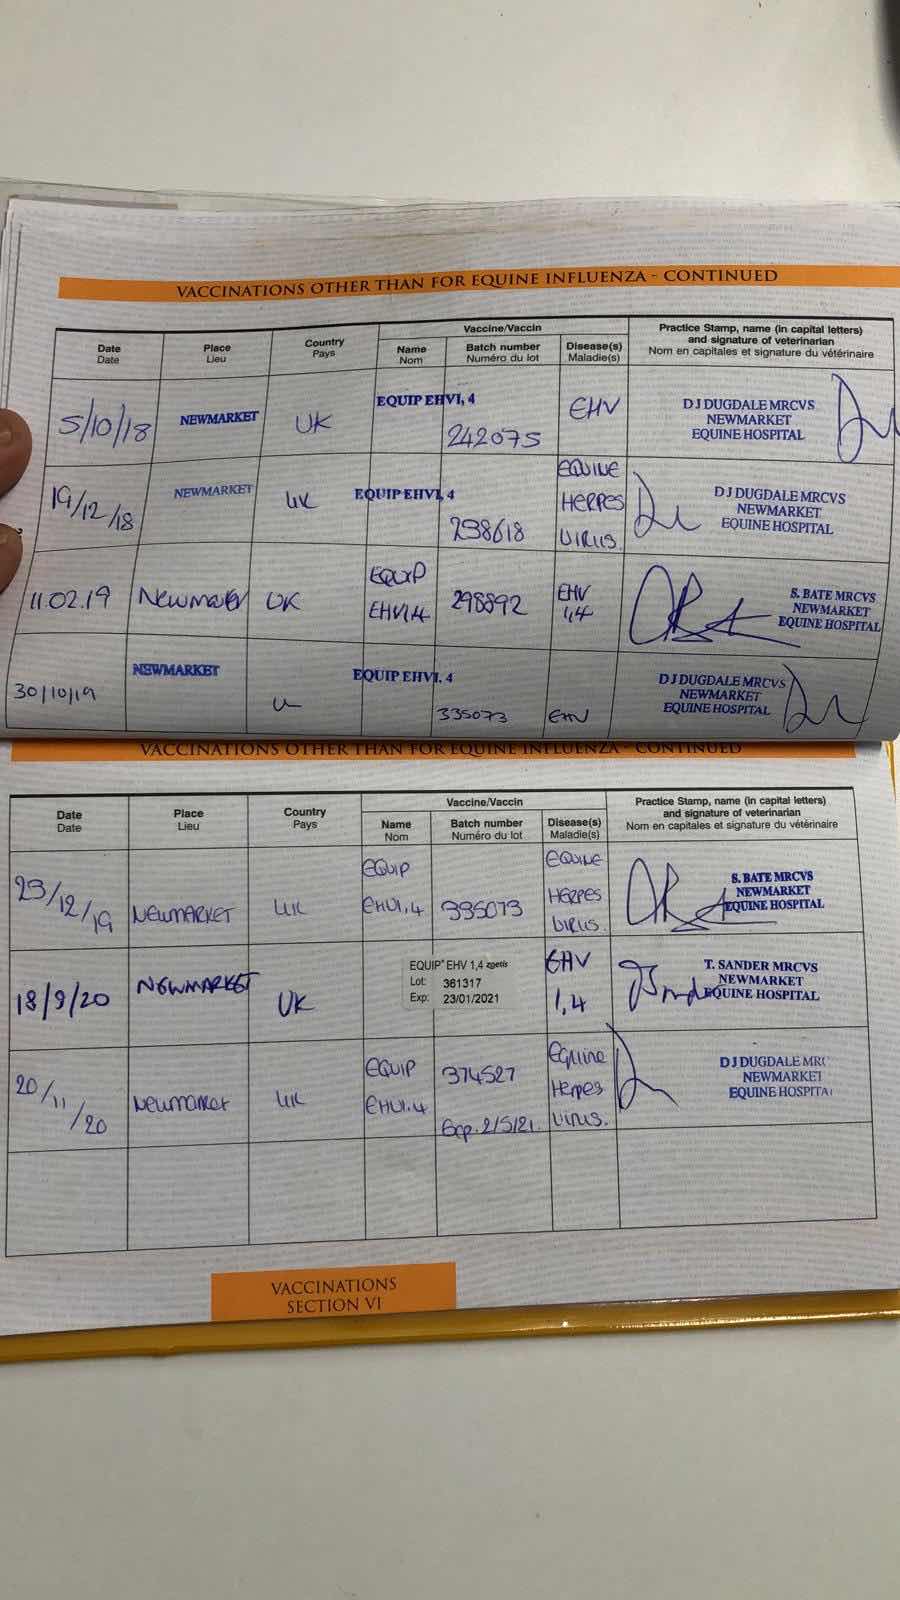 VACCINATIONS OTHER THAN FOR EQUINE INFLUENZA - CONTINUED
Date
Date
Place
Lieu
Country
Pays
Vaccine/Vaccin
Name
Nom
Batch number
Numéro du lot
Disease(s)
Maladie(s)
Practice Stamp, name (in capital letters)
and signature of veterinarian
Nom en capitales et signature du vétérinaire
5/10/18
NEWMARKET
UK
EQUIP EHV1, 4
242075
EHV
D J DUGDALE MRCVS
NEWMARKET
EQUINE HOSPITAL
19/12/18
NEWMARKET
UK
EQUIP EHV1, 4
238618
EQUINE
HERPES
VIRUS.
D J DUGDALE MRCVS
NEWMARKET
EQUINE HOSPITAL
11.02.19
NEWMARKET
UK
EQUIP
EHV1,4
298892
EHV
1,4
S. BATE MRCVS
NEWMARKET
EQUINE HOSPITAL
30/10/19
NEWMARKET
EQUIP EHV1, 4
335073
EHV
D J DUGDALE MRCVS
NEWMARKET
EQUINE HOSPITAL
VACCINATIONS OTHER THAN FOR EQUINE INFLUENZA - CONTINUED
Date
Date
Place
Lieu
Country
Pays
Vaccine/Vaccin
Name
Nom
Batch number
Numéro du lot
Disease(s)
Maladie(s)
Practice Stamp, name (in capital letters)
and signature of veterinarian
Nom en capitales et signature du vétérinaire
23/12/19
NEWMARKET
UK
EQUIP
EHV1,4
335073
EQUINE
HERPES
VIRUS.
S. BATE MRCVS
NEWMARKET
EQUINE HOSPITAL
18/9/20
NEWMARKET
UK
EQUIP® EHV 1,4 zoetis
Lot: 361317
Exp: 23/01/2021
EHV
1,4
T. SANDER MRCVS
NEWMARKET
EQUINE HOSPITAL
20/11/20
Newmarket
UK
EQUIP
EHV1.4
374527
Exp. 2/5/21.
Equine
Herpes
Virus.
D J DUGDALE MRC
NEWMARKET
EQUINE HOSPITA
VACCINATIONS
SECTION VI